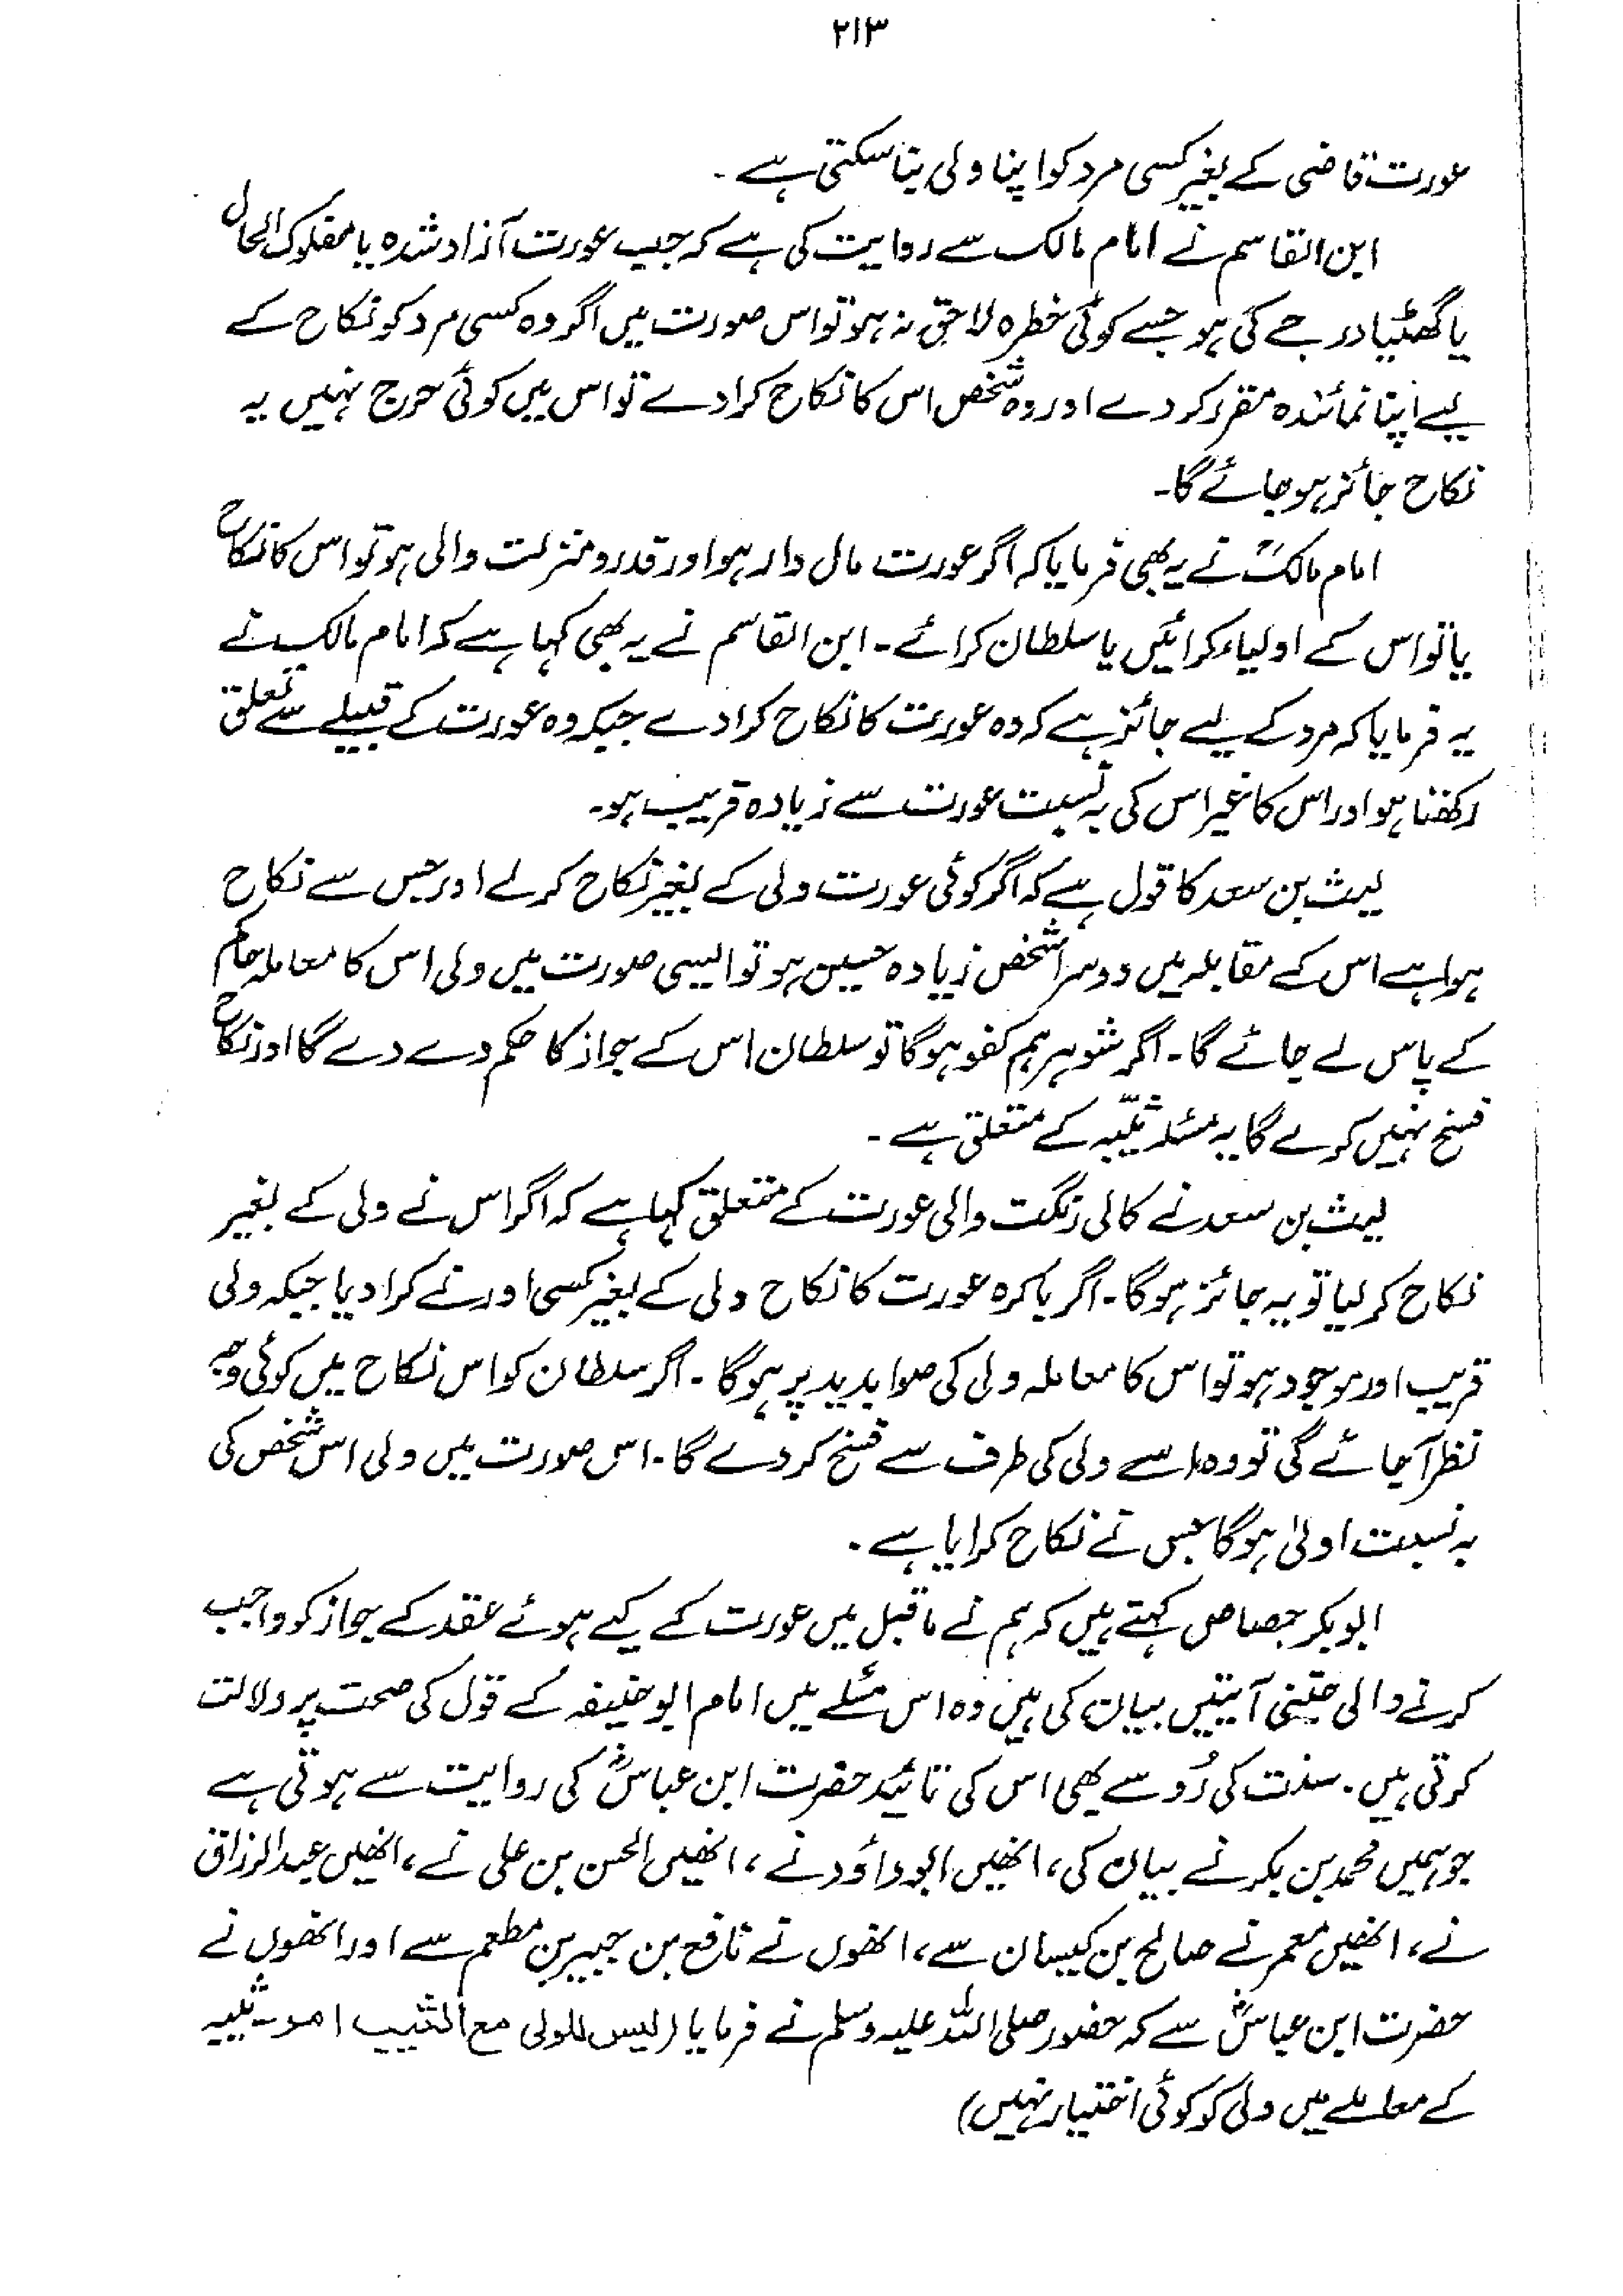 ۲۱۳
عورت قاضی کے بغیر کسی مرد کو اپنا ولی بنا سکتی ہے۔
ابن القاسم نے امام مالک سے روایت کی ہے کہ جب عورت آزاد شدہ یا مفلوک الحال
یا گھٹیا درجے کی ہو جسے کوئی خطرہ لاحق نہ ہو تو اس صورت میں اگر وہ کسی مرد کو نکاح کے
لیے اپنا نمائندہ مقرر کر دے اور وہ شخص اس کا نکاح کرا دے تو اس میں کوئی حرج نہیں یہ
نکاح جائز ہو جائے گا۔
امام مالکؒ نے یہ بھی فرمایا کہ اگر عورت مال دار ہو اور قدر و منزلت والی ہو تو اس کا نکاح
یا تو اس کے اولیاء کرائیں یا سلطان کرائے۔ ابن القاسم نے یہ بھی کہا ہے کہ امام مالک نے
یہ فرمایا کہ مرد کے لیے جائز ہے کہ وہ عورت کا نکاح کرا دے جبکہ وہ عورت کے قبیلے سے تعلق
رکھتا ہو اور اس کا غیر اس کی بہ نسبت عورت سے زیادہ قریب ہو۔
لیث بن سعد کا قول ہے کہ اگر کوئی عورت ولی کے بغیر نکاح کر لے اور جس سے نکاح
ہوا ہے اس کے مقابلہ میں دوسرا شخص زیادہ حسین ہو تو ایسی صورت میں ولی اس کا معاملہ حاکم
کے پاس لے جائے گا۔ اگر شوہر ہم کفو ہوگا تو سلطان اس کے جواز کا حکم دے دے گا اور نکاح
فسخ نہیں کرے گا یہ مسئلہ ثیّبہ کے متعلق ہے۔
لیث بن سعد نے کالی رنگت والی عورت کے متعلق کہا ہے کہ اگر اس نے ولی کے بغیر
نکاح کر لیا تو یہ جائز ہوگا۔ اگر باکرہ عورت کا نکاح ولی کے بغیر کسی اور نے کرا دیا جبکہ ولی
قریب اور موجود ہو تو اس کا معاملہ ولی کی صوابدید پر ہوگا۔ اگر سلطان کو اس نکاح میں کوئی وجہ
نظر آجائے گی تو وہ اسے ولی کی طرف سے فسخ کر دے گا۔ اس صورت میں ولی اس شخص کی
بہ نسبت اولیٰ ہوگا جس نے نکاح کرایا ہے۔
ابوبکر جصاص کہتے ہیں کہ ہم نے ماقبل میں عورت کے کیے ہوئے عقد کے جواز کو واجب
کرنے والی جتنی آیتیں بیان کی ہیں وہ اس مسئلے میں امام ابو حنیفہ کے قول کی صحت پر دلالت
کرتی ہیں۔ سنت کی رُو سے بھی اس کی تائید حضرت ابن عباسؓ کی روایت سے ہوتی ہے
جو ہمیں محمد بن بکر نے بیان کی، انھیں ابو داؤد نے، انھیں الحسن بن علی نے، انھیں عبدالرزاق
نے، انھیں معمر نے صالح بن کیسان سے، انھوں نے نافع بن جبیر بن مطعم سے اور انھوں نے
حضرت ابن عباسؓ سے کہ حضور صلی اللہ علیہ وسلم نے فرمایا (لیس للولی مع الثیب امر۔ ثیبہ
کے معاملے میں ولی کو کوئی اختیار نہیں)